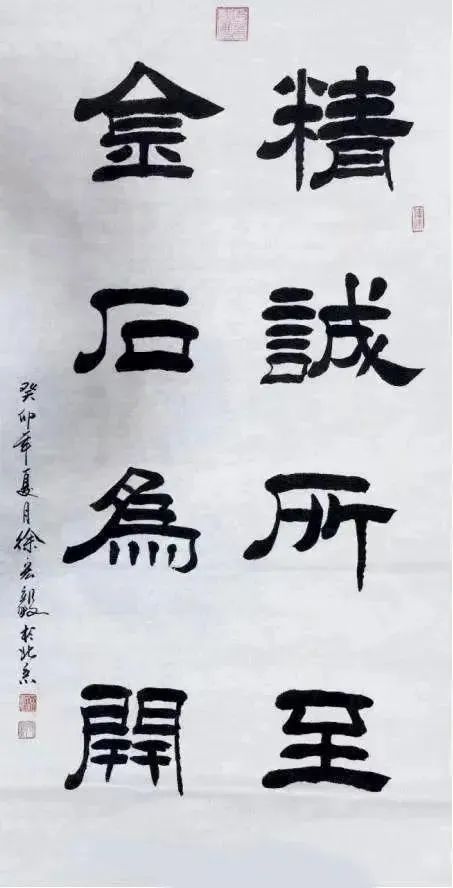 精誠所至
金石為開
癸卯年夏月徐宏毅於北京